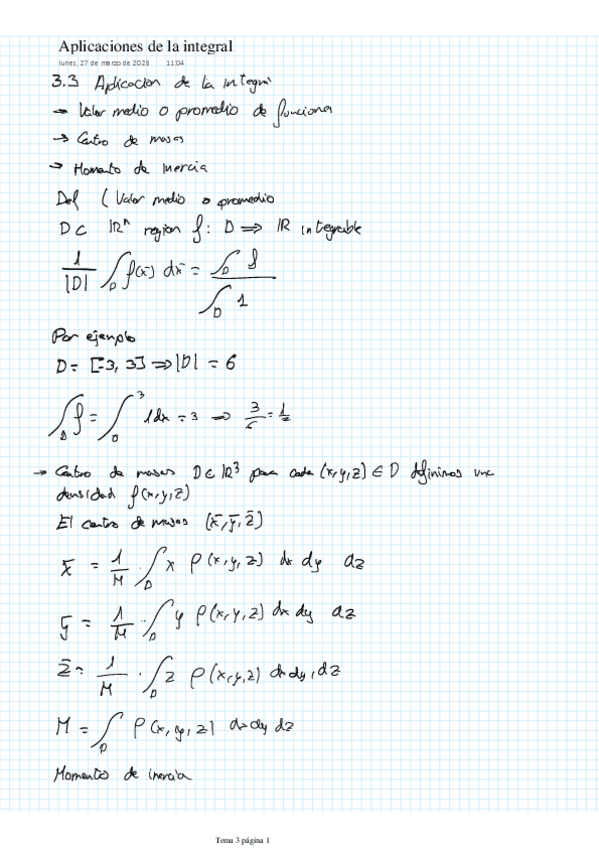 Aplicaciones de la integral
lunes, 27 de marzo de 2023 11:04
3.3 Aplicacion de la integral
→ Valor medio o promedio de funciones
→ Centro de masas
→ Momento de Inercia
Def (Valor medio o promedio
D ⊂ ℝⁿ region f: D ⟹ ℝ integrable
1/|D| ∫_D f(x̄) dx̄ = ∫_D f / ∫_D 1
Por ejemplo
D = [-3, 3] ⟹ |D| = 6
∫_D f = ∫_0^3 1dx = 3 ⟹ 3/6 = 1/2
→ Centro de masas D ⊂ ℝ³ para cada (x,y,z) ∈ D definimos una
densidad ρ(x,y,z)
El centro de masas (x̄, ȳ, z̄)
x̄ = 1/M · ∫_D x ρ(x,y,z) dx dy dz
ȳ = 1/M · ∫_D y ρ(x,y,z) dx dy dz
z̄ = 1/M · ∫_D z ρ(x,y,z) dx dy, dz
M = ∫_D ρ(x,y,z) dx dy dz
Momento de inercia
Tema 3 página 1